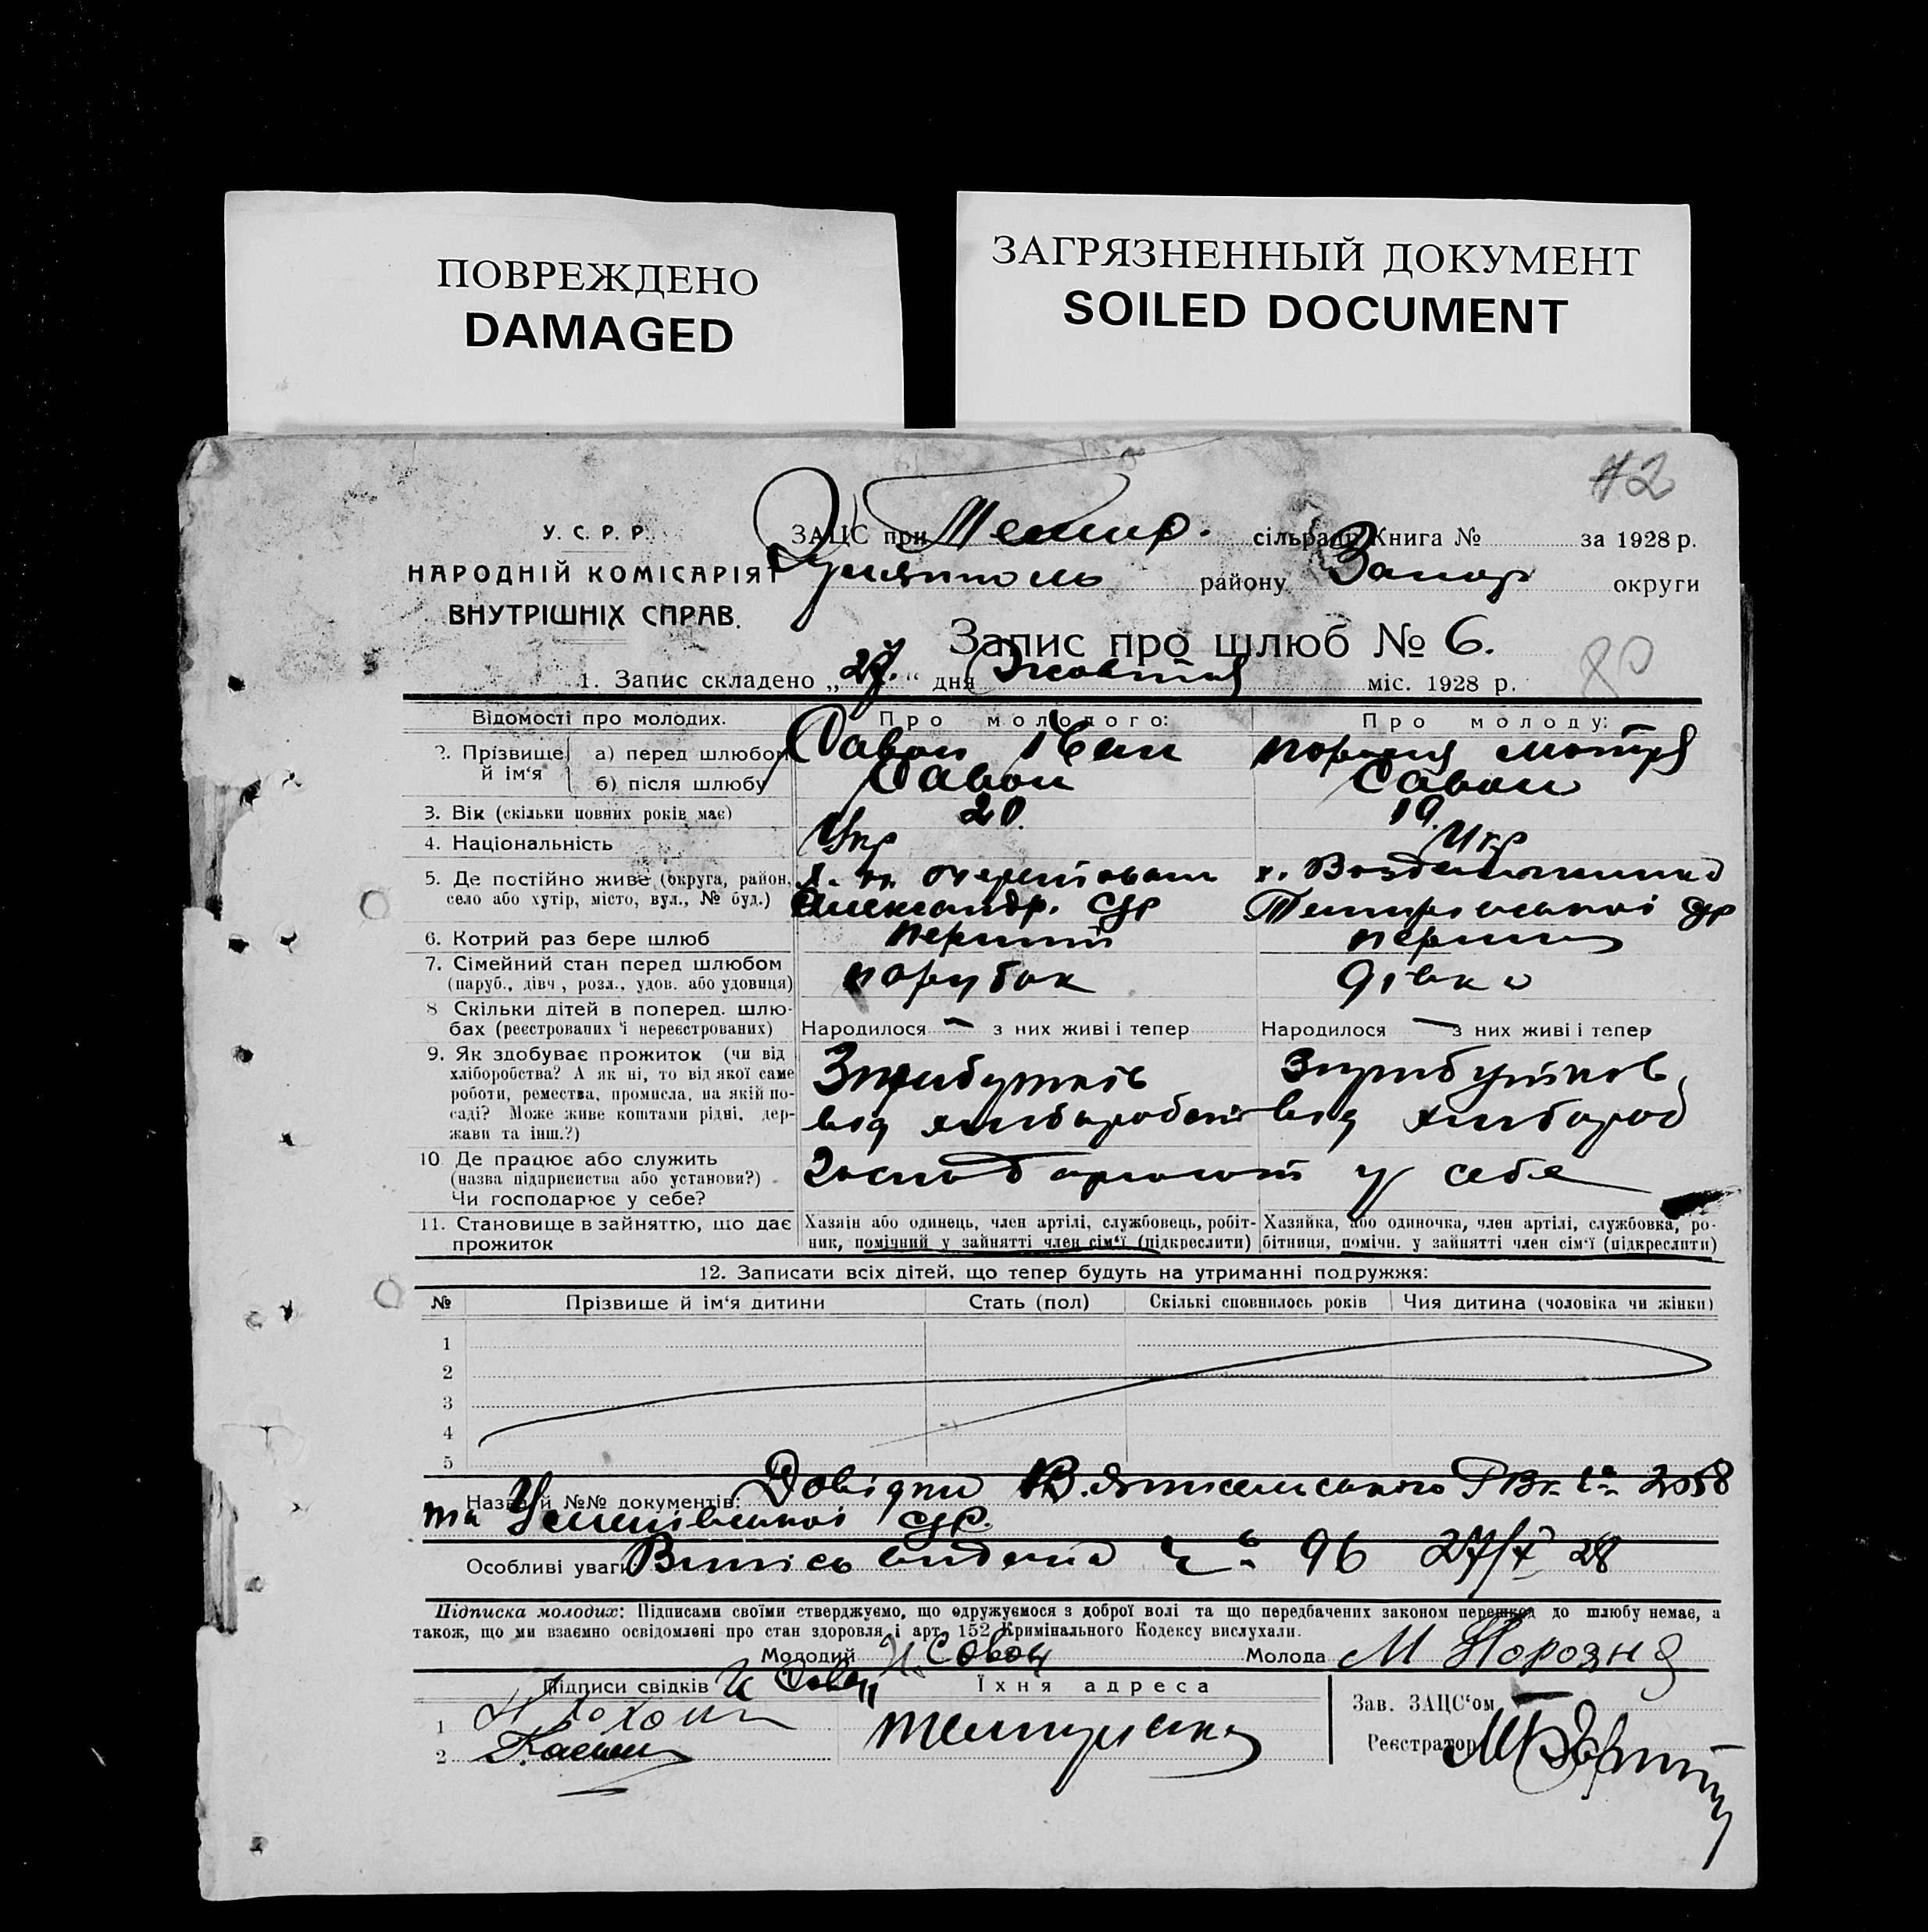 ПОВРЕЖДЕНО
DAMAGED
ЗАГРЯЗНЕННЫЙ ДОКУМЕНТ
SOILED DOCUMENT
У. С. Р. Р.
НАРОДНІЙ КОМІСАРІЯТ
ВНУТРІШНІХ СПРАВ.
ЗАЦС при сільраді Книга № за 1928 р.
району Запор округи
Запис про шлюб № 6.
80
1. Запис складено „27.“ дня Жовтня міс. 1928 р.
Відомості про молодих. Про молодого: Про молоду:
2. Прізвище й ім‘я а) перед шлюбом Савон Іван Мотря
б) після шлюбу Савон Савон
3. Вік (скільки повних років має) 20. 19.
4. Національність Укр Укр
5. Де постійно живе (округа, район,
село або хутір, місто, вул., № буд.) Александр. с/р с/р
6. Котрий раз бере шлюб перший перший
7. Сімейний стан перед шлюбом
(паруб., дівч., розл., удов. або удовиця) парубок дівка
8 Скільки дітей в поперед. шлю-
бах (реєстрованих і нереєстрованих) Народилося — з них живі і тепер Народилося — з них живі і тепер
9. Як здобуває прожиток (чи від
хліборобства? А як ні, то від якої саме
роботи, ремества, промисла, на якій по-
саді? Може живе коштами рідні, дер-
жави та інш.?)
Зприбутків Зприбутков
від від хлибороб
10. Де працює або служить
(назва підприємства або установи?)
Чи господарює у себе?
у себе
11. Становище в зайняттю, що дає
прожиток
Хазяін або одинець, член артілі, службовець, робіт-
ник, помічний у зайнятті член сім‘ї (підкреслити)
Хазяйка, або одиночка, член артілі, службовка, ро-
бітниця, помічн. у зайнятті член сім‘ї (підкреслити)
12. Записати всіх дітей, що тепер будуть на утриманні подружжя:
№ Прізвище й ім‘я дитини Стать (пол) Скількі сповнилось років Чия дитина (чоловіка чи жінки)
1
2
3
4
5
Назва й №№ документів: Довідки 2058
та с/р.
Особливі уваги Випісь видана 96 27/X 28
Підписка молодих: Підписами своїми стверджуємо, що одружуємося з доброї волі та що передбачених законом перешкод до шлюбу немає, а
також, що ми взаємно освідомлені про стан здоровля і арт. 152 Кримінального Кодексу вислухали.
Молодий И. Савон Молода М
Підписи свідків Їхня адреса
1
2
Зав. ЗАЦС‘ом
Реєстратор